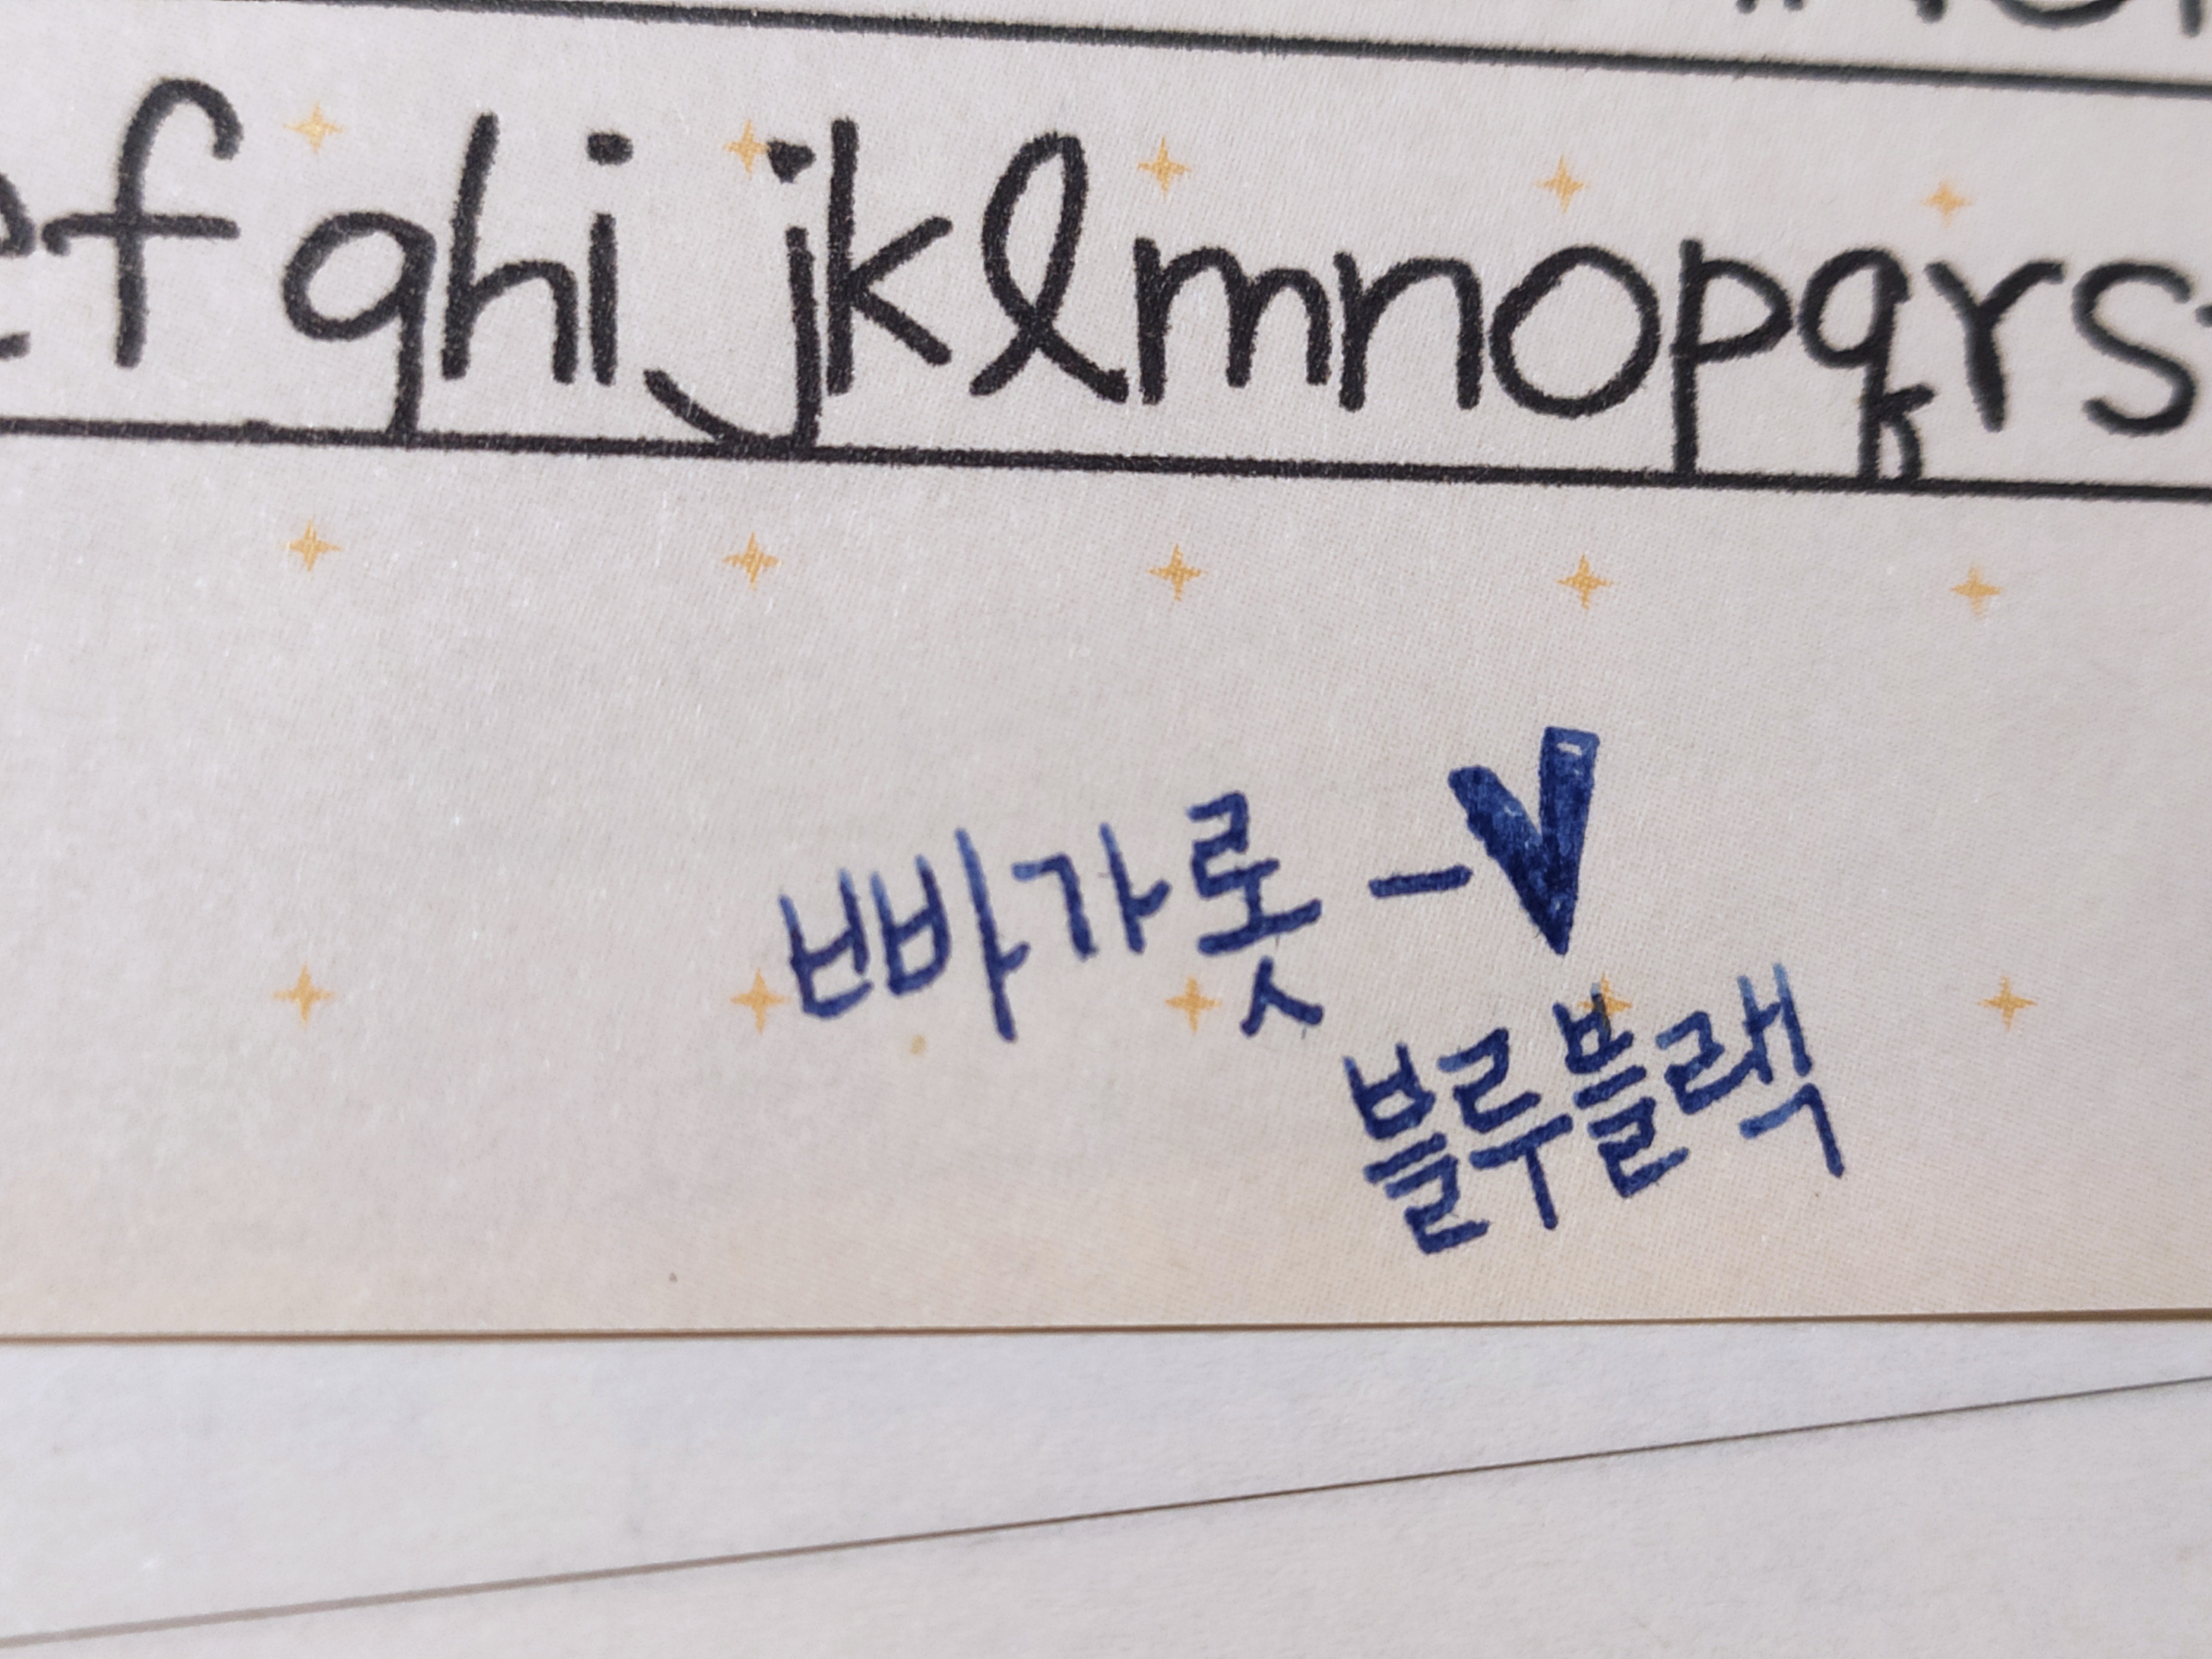 ef ghi jklmnopqrs
빠가롯 - V
블루블랙